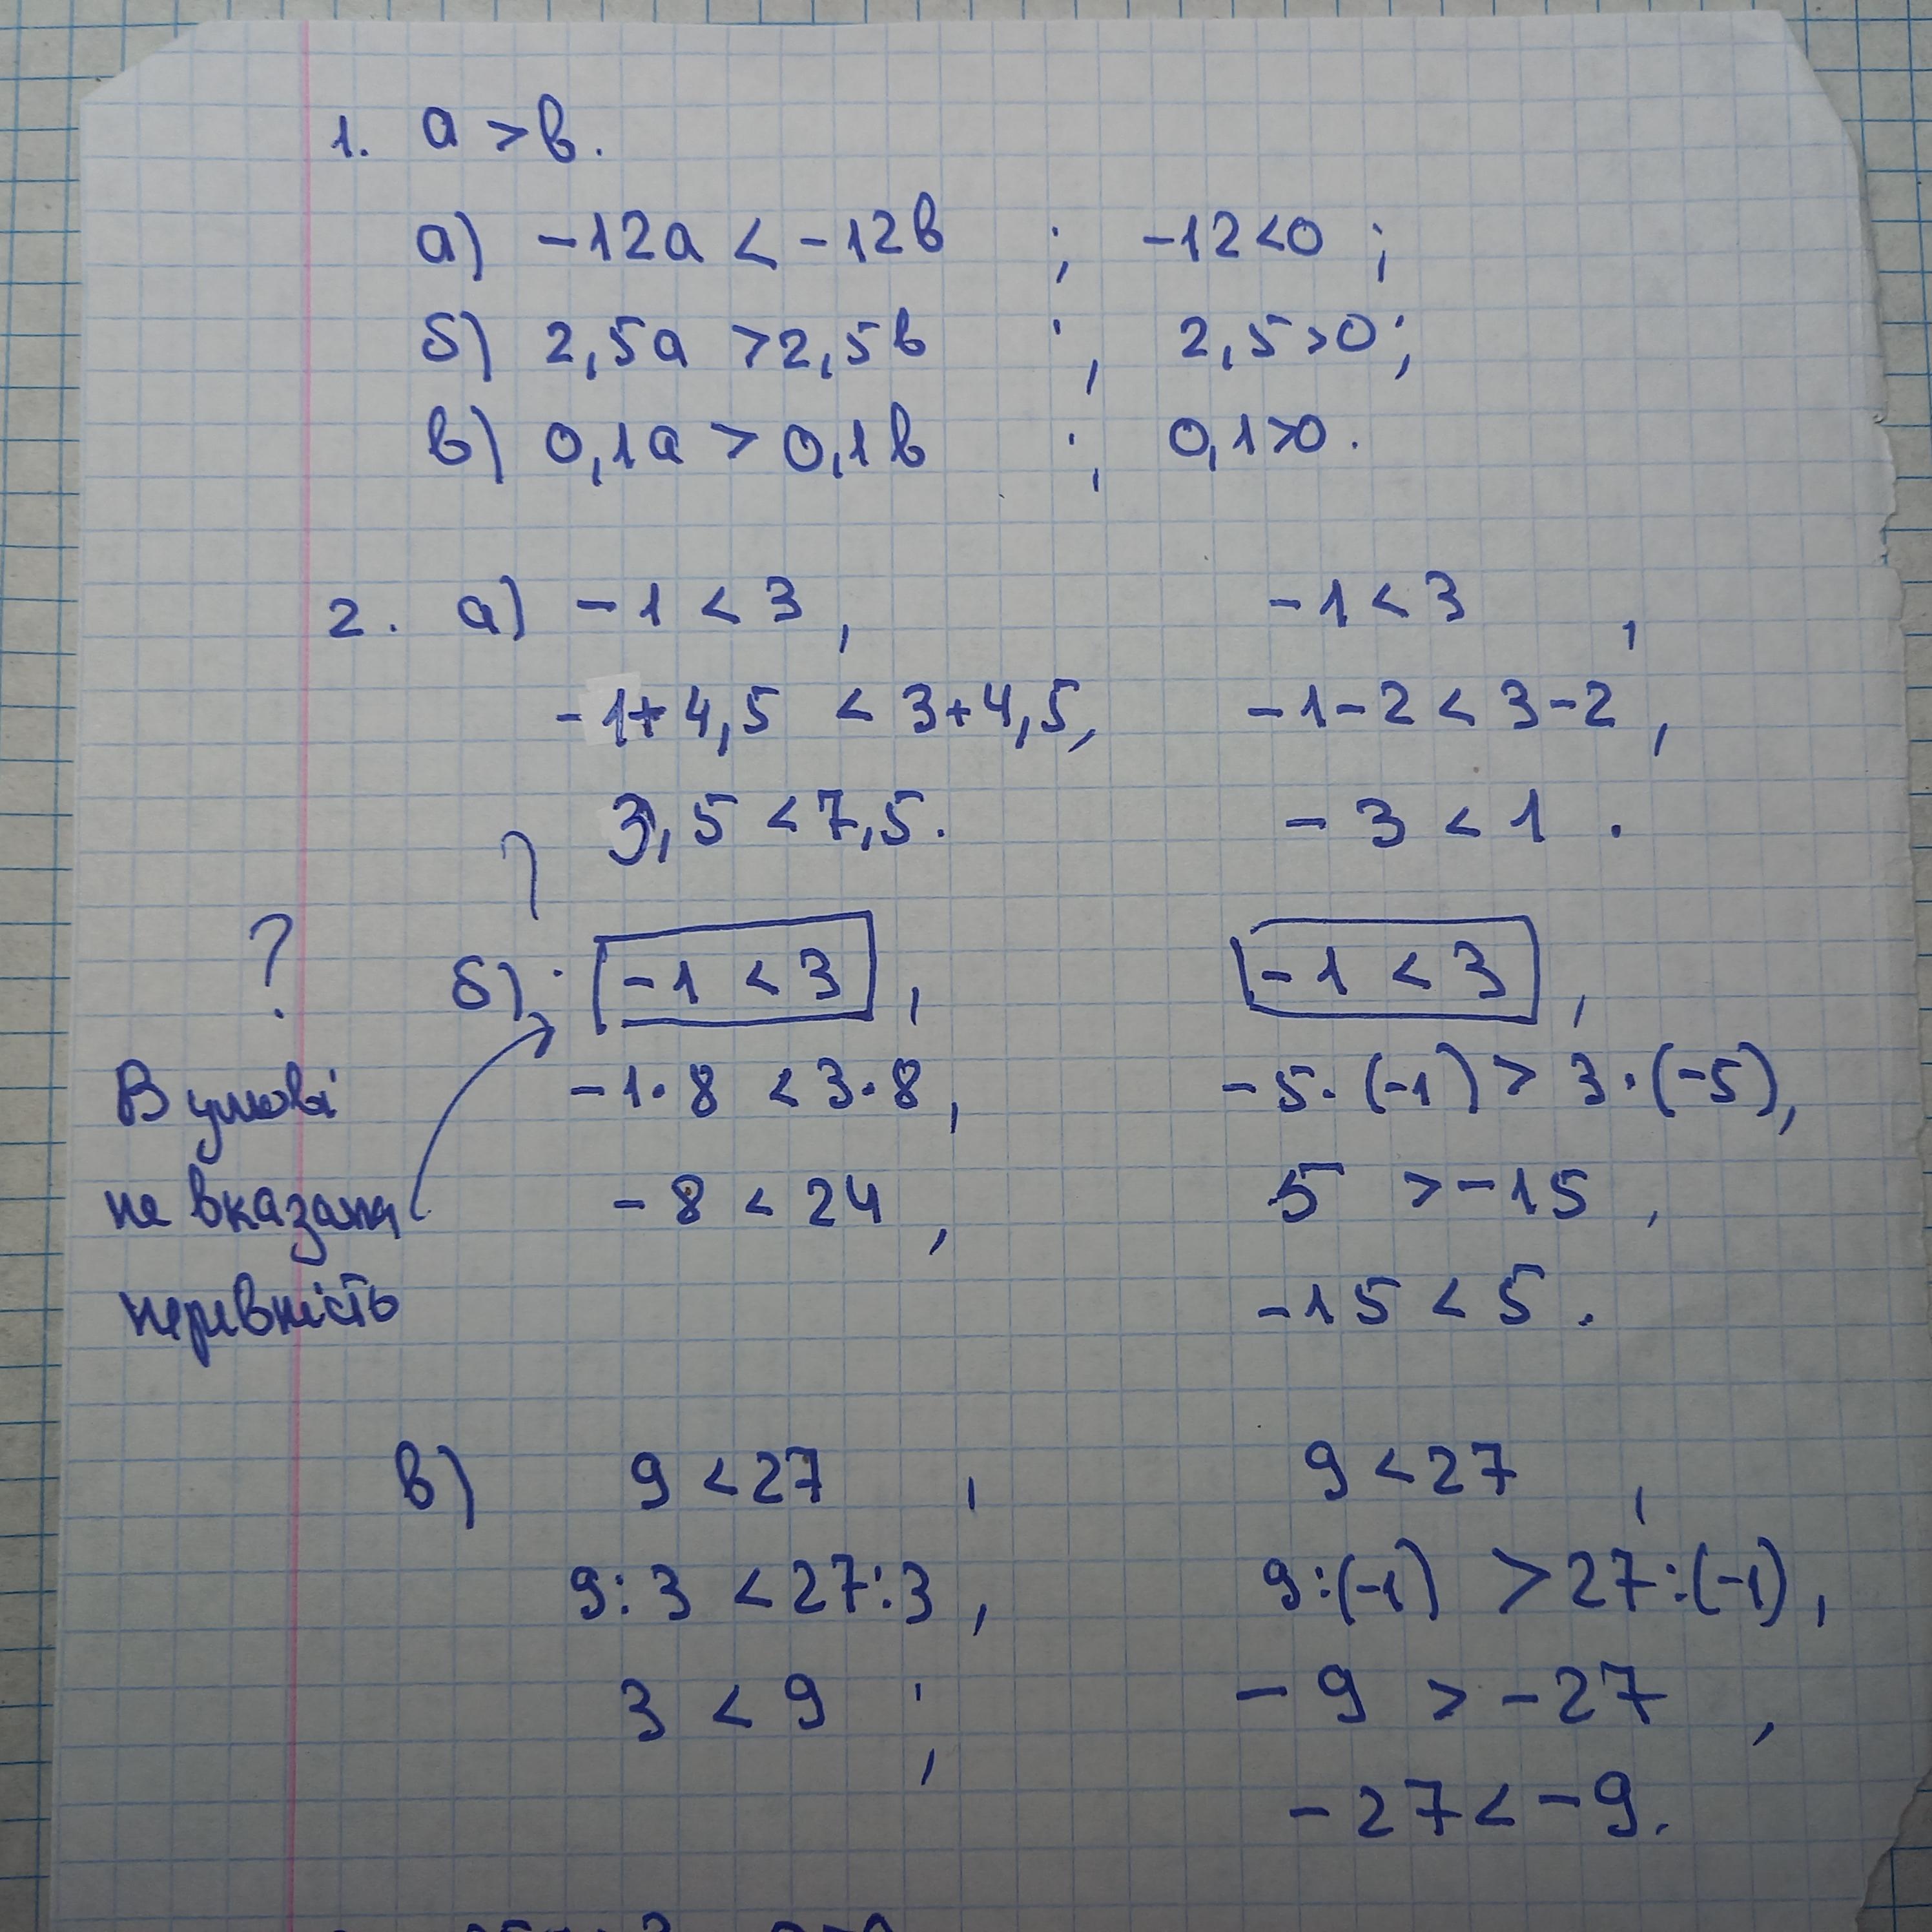 1. a > b.
а) -12a < -12b ; -12<0 ;
б) 2,5a >2,5b ; 2,5>0;
в) 0,1a > 0,1b ; 0,1>0.
2. а) -1 < 3 , -1 < 3 ,
-1+4,5 < 3+4,5, -1-2 < 3-2 ,
3,5 < 7,5. -3 < 1 .
?
б) -1 < 3 , -1 < 3 ,
-1·8 < 3·8, -5·(-1) > 3·(-5),
-8 < 24 , 5 > -15 ,
-15 < 5 .
В умові
не вказана
нерівність
в) 9 < 27 , 9 < 27 ,
9:3 < 27:3 , 9:(-1) > 27:(-1) ,
3 < 9 ; -9 > -27 ,
-27 < -9.